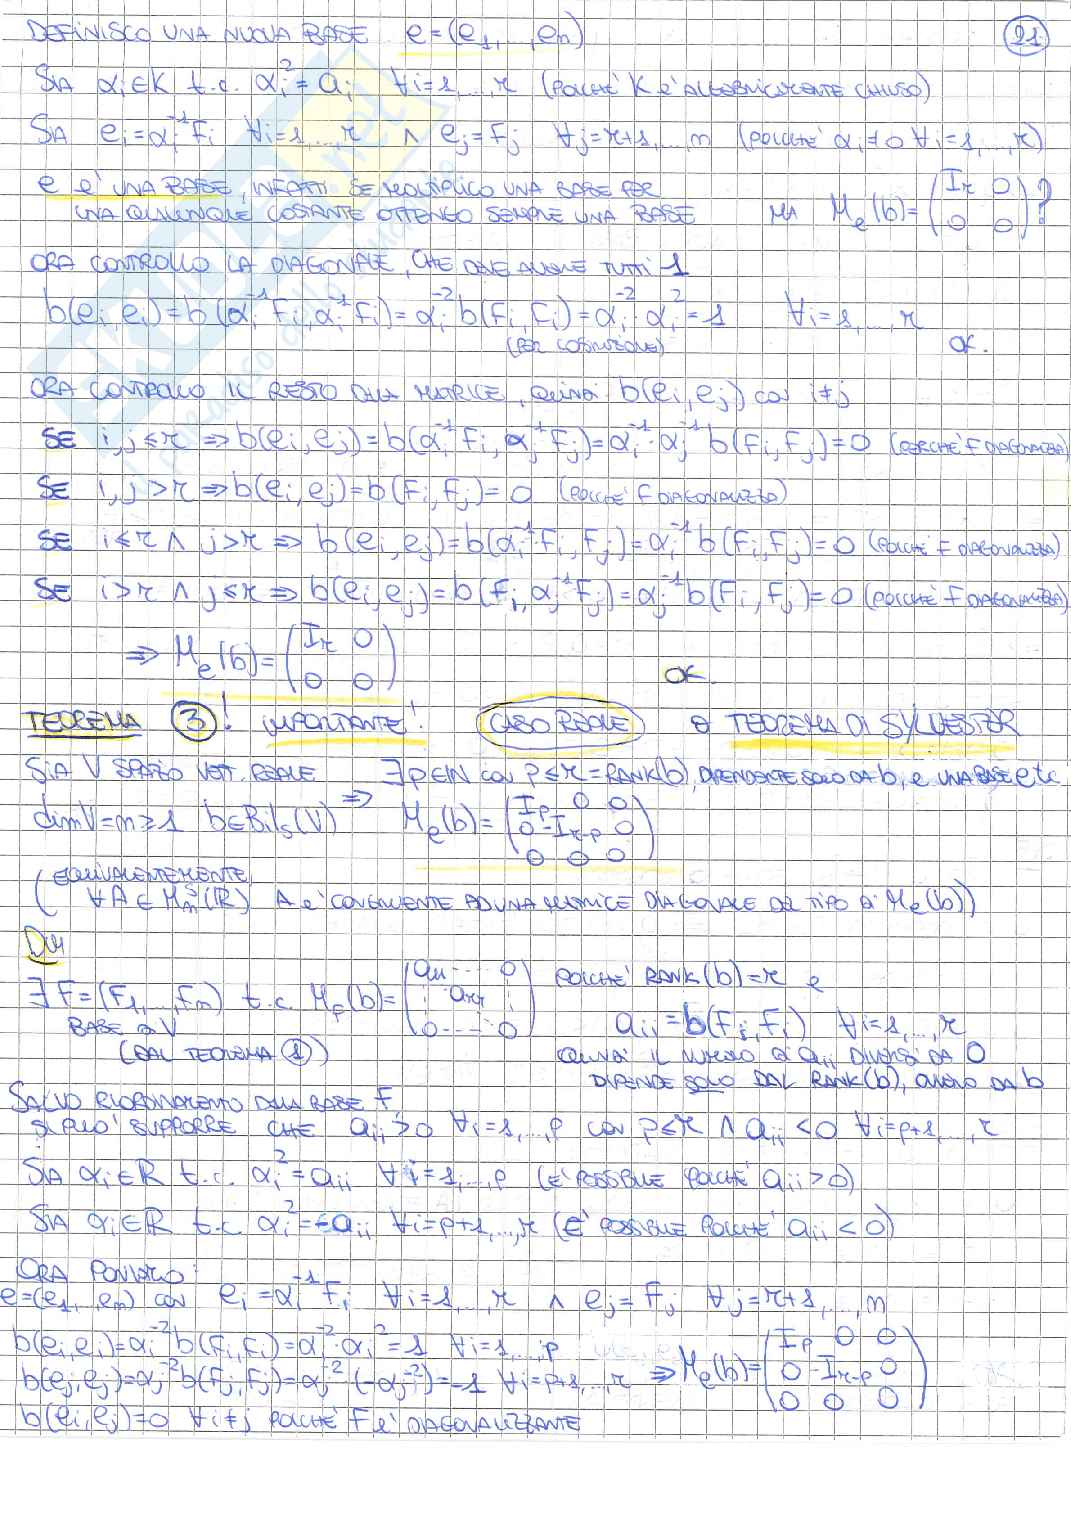 21
DEFINISCO UNA NUOVA BASE e=(e₁,...,eₙ)
SIA αᵢ∈K t.c. αᵢ²=aᵢ ∀i=1,...,r (POICHÉ K È ALGEBRICAMENTE CHIUSO)
SIA eᵢ=αᵢ⁻¹fᵢ ∀i=1,...,r ∧ eⱼ=fⱼ ∀j=r+1,...,n (POICHÉ αᵢ≠0 ∀i=1,...,r)
e È UNA BASE, INFATTI SE MOLTIPLICO UNA BASE PER
UNA QUALUNQUE COSTANTE OTTENGO SEMPRE UNA BASE MA Mₑ(b)=(Iᵣ 0 / 0 0)?
ORA CONTROLLO LA DIAGONALE, CHE DEVE AVERE TUTTI 1
b(eᵢ,eᵢ)=b(αᵢ⁻¹fᵢ,αᵢ⁻¹fᵢ)=αᵢ⁻²b(fᵢ,fᵢ)=αᵢ⁻²·αᵢ²=1 ∀i=1,...,r
(PER COSTRUZIONE) OK.
ORA CONTROLLO IL RESTO DELLA MATRICE, QUINDI b(eᵢ,eⱼ) CON i≠j
SE i,j≤r ⇒ b(eᵢ,eⱼ)=b(αᵢ⁻¹fᵢ,αⱼ⁻¹fⱼ)=αᵢ⁻¹·αⱼ⁻¹b(fᵢ,fⱼ)=0 (PERCHÉ F DIAGONALIZZA)
SE i,j>r ⇒ b(eᵢ,eⱼ)=b(fᵢ,fⱼ)=0 (POICHÉ F DIAGONALIZZA)
SE i≤r ∧ j>r ⇒ b(eᵢ,eⱼ)=b(αᵢ⁻¹fᵢ,fⱼ)=αᵢ⁻¹b(fᵢ,fⱼ)=0 (POICHÉ F DIAGONALIZZA)
SE i>r ∧ j≤r ⇒ b(eᵢ,eⱼ)=b(fᵢ,αⱼ⁻¹fⱼ)=αⱼ⁻¹b(fᵢ,fⱼ)=0 (POICHÉ F DIAGONALIZZA)
⇒ Mₑ(b)=(Iᵣ 0 / 0 0) OK.
TEOREMA 3! IMPORTANTE! CASO REALE O TEOREMA DI SYLVESTER
SIA V SPAZIO VETT. REALE ⇒ ∃p∈ℕ CON p≤r=RANK(b), DIPENDENTE SOLO DA b, E UNA BASE e t.c.
dimV=n≥1 b∈Bilₛ(V) Mₑ(b)=(Iₚ 0 0 / 0 -Iᵣ₋ₚ 0 / 0 0 0)
(EQUIVALENTEMENTE
∀A∈Mₙˢ(ℝ) A È CONGRUENTE AD UNA MATRICE DIAGONALE DEL TIPO DI Mₑ(b))
DIM
∃F=(f₁,...,fₙ) t.c. M_f(b)=(a₁₁ ---- 0 / ⋮ aᵣᵣ ⋮ / 0 ---- 0) POICHÉ RANK(b)=r e
BASE DI V aᵢᵢ=b(fᵢ,fᵢ) ∀i=1,...,r
(DAL TEOREMA 1) QUINDI IL NUMERO DI aᵢᵢ DIVERSI DA 0
DIPENDE SOLO DAL RANK(b), OVVERO DA b
SALVO RIORDINAMENTO DELLA BASE F,
SI PUÒ SUPPORRE CHE aᵢᵢ>0 ∀i=1,...,p CON p≤r ∧ aᵢᵢ<0 ∀i=p+1,...,r
SIA αᵢ∈ℝ t.c. αᵢ²=aᵢᵢ ∀i=1,...,p (È POSSIBILE POICHÉ aᵢᵢ>0)
SIA αᵢ∈ℝ t.c. αᵢ²=-aᵢᵢ ∀i=p+1,...,r (È POSSIBILE POICHÉ aᵢᵢ<0)
ORA PONIAMO:
e=(e₁,..,eₙ) CON eᵢ=αᵢ⁻¹fᵢ ∀i=1,...,r ∧ eⱼ=fⱼ ∀j=r+1,...,n
b(eᵢ,eᵢ)=αᵢ⁻²b(fᵢ,fᵢ)=αᵢ⁻²·αᵢ²=1 ∀i=1,...,p
b(eⱼ,eⱼ)=αⱼ⁻²b(fⱼ,fⱼ)=αⱼ⁻²·(-αⱼ²)=-1 ∀i=p+1,...,r ⇒ Mₑ(b)=(Iₚ 0 0 / 0 -Iᵣ₋ₚ 0 / 0 0 0)
b(eᵢ,eⱼ)=0 ∀i≠j POICHÉ F È DIAGONALIZZANTE